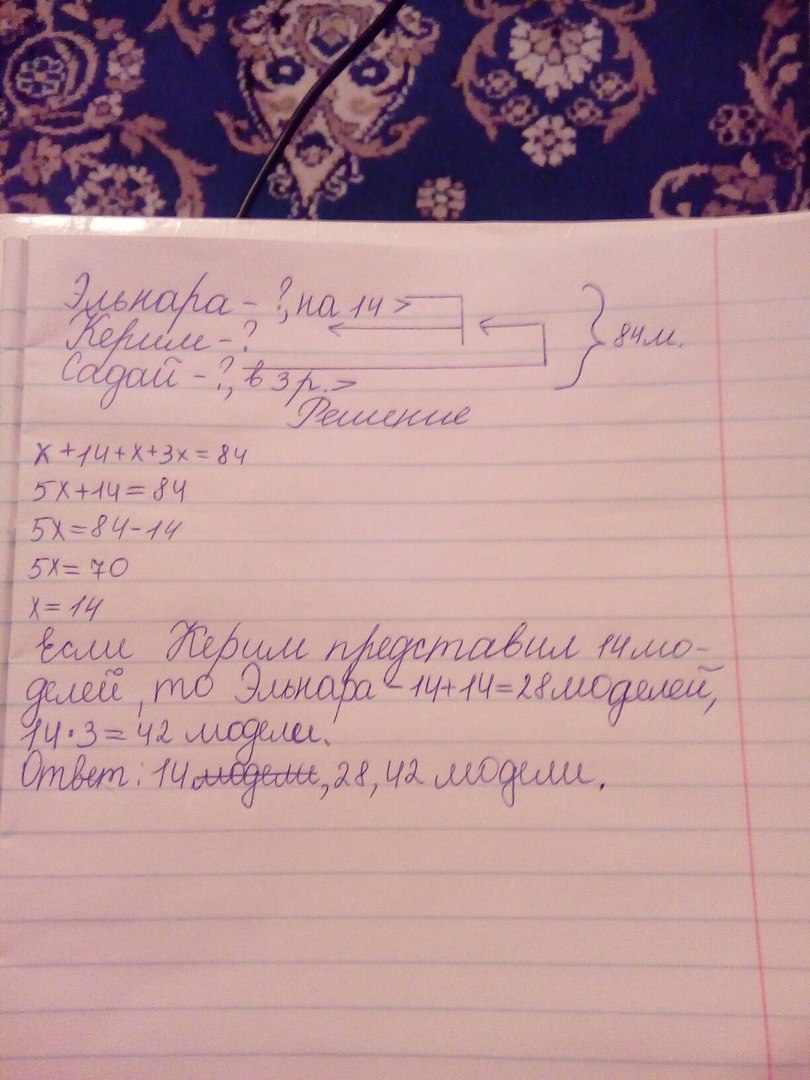 Эльнара - ?, на 14 >
Керим - ?
Садай - ?, в 3 р. >
84 м.
Решение
x+14+x+3x=84
5x+14=84
5x=84-14
5x=70
x=14
Если Керим представил 14 мо-
делей, то Эльнара - 14+14=28 моделей,
14·3=42 модели.
Ответ: 14 модели, 28, 42 модели.